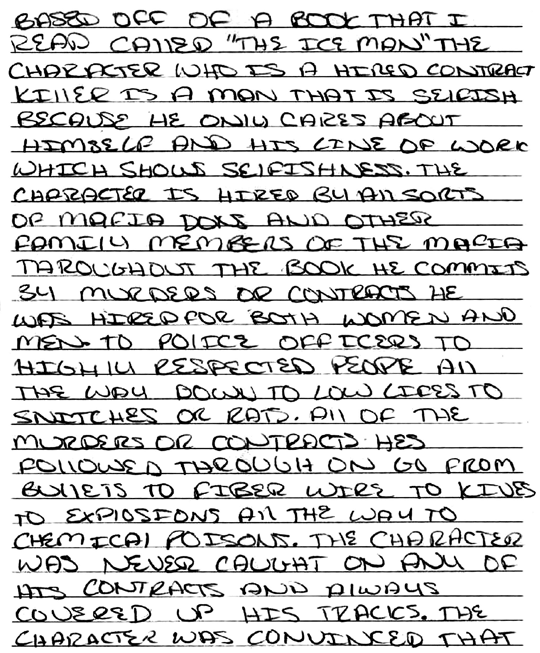 BASED OFF OF A BOOK THAT I
READ CALLED "THE ICE MAN" THE
CHARACTER WHO IS A HIRED CONTRACT
KILLER IS A MAN THAT IS SELFISH
BECAUSE HE ONLY CARES ABOUT
HIMSELF AND HIS LINE OF WORK
WHICH SHOWS SELFISHNESS. THE
CHARACTER IS HIRED BY All SORTS
OF MAFIA DONS AND OTHER
FAMILY MEMBERS OF THE MAFIA
THROUGHOUT THE BOOK HE COMMITS
34 MURDERS OR CONTRACTS HE
WAS HIRED FOR BOTH WOMEN AND
MEN. TO POLICE OFFICERS TO
HIGHLY RESPECTED PEOPLE All
THE WAY DOWN TO LOW LIFES TO
SNITCHES OR RATS. All OF THE
MURDERS OR CONTRACTS HES
FOLLOWED THROUGH ON GO FROM
BULLETS TO FIBER WIRE TO KIVES
TO EXPLOSIONS All THE WAY TO
CHEMICAL POISONS. THE CHARACTER
WAS NEVER CAUGHT ON ANY OF
HIS CONTRACTS AND ALWAYS
COVERED UP HIS TRACKS. THE
CHARACTER WAS CONVINCED THAT